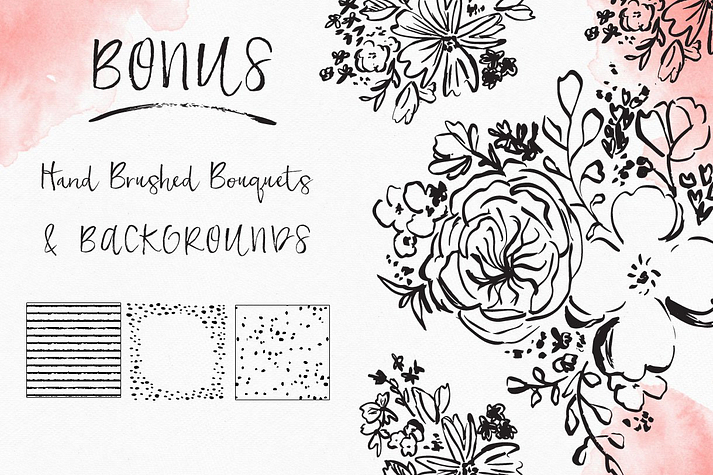 BONUS
Hand Brushed Bouquets
& BACKGROUNDS